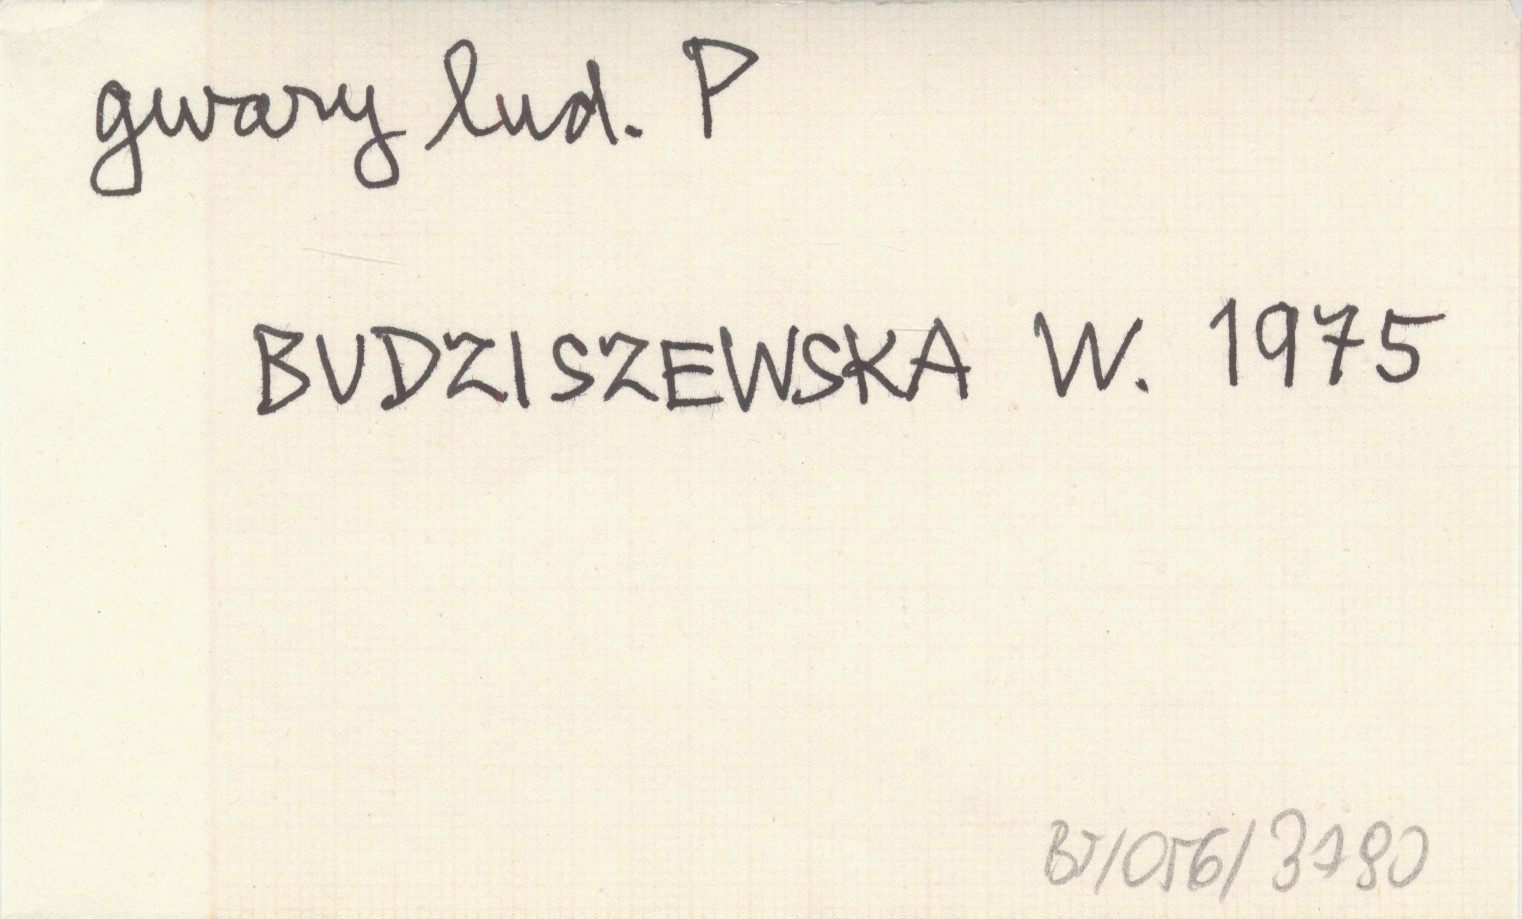 gwary lud. P
BUDZISZEWSKA W. 1975
BJ/056/3780